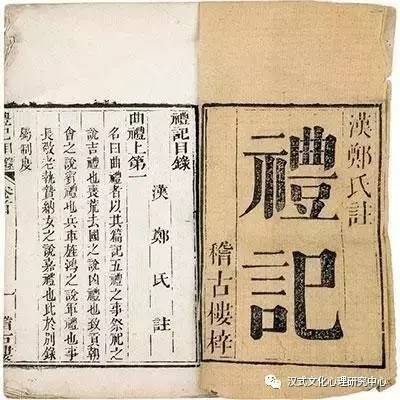 漢鄭氏註
禮記
稽古樓梓
禮記目錄
曲禮上第一
漢鄭氏註
名曰曲禮者以其篇記五禮之事祭祀之
說吉禮也喪荒去國之說凶禮也致貢朝
會之說賓禮也兵車旌鴻之說軍禮也事
長敬老執贄納女之說嘉禮也此於別錄
屬制度
禮記目錄
一
稽古樓
汉式文化心理研究中心